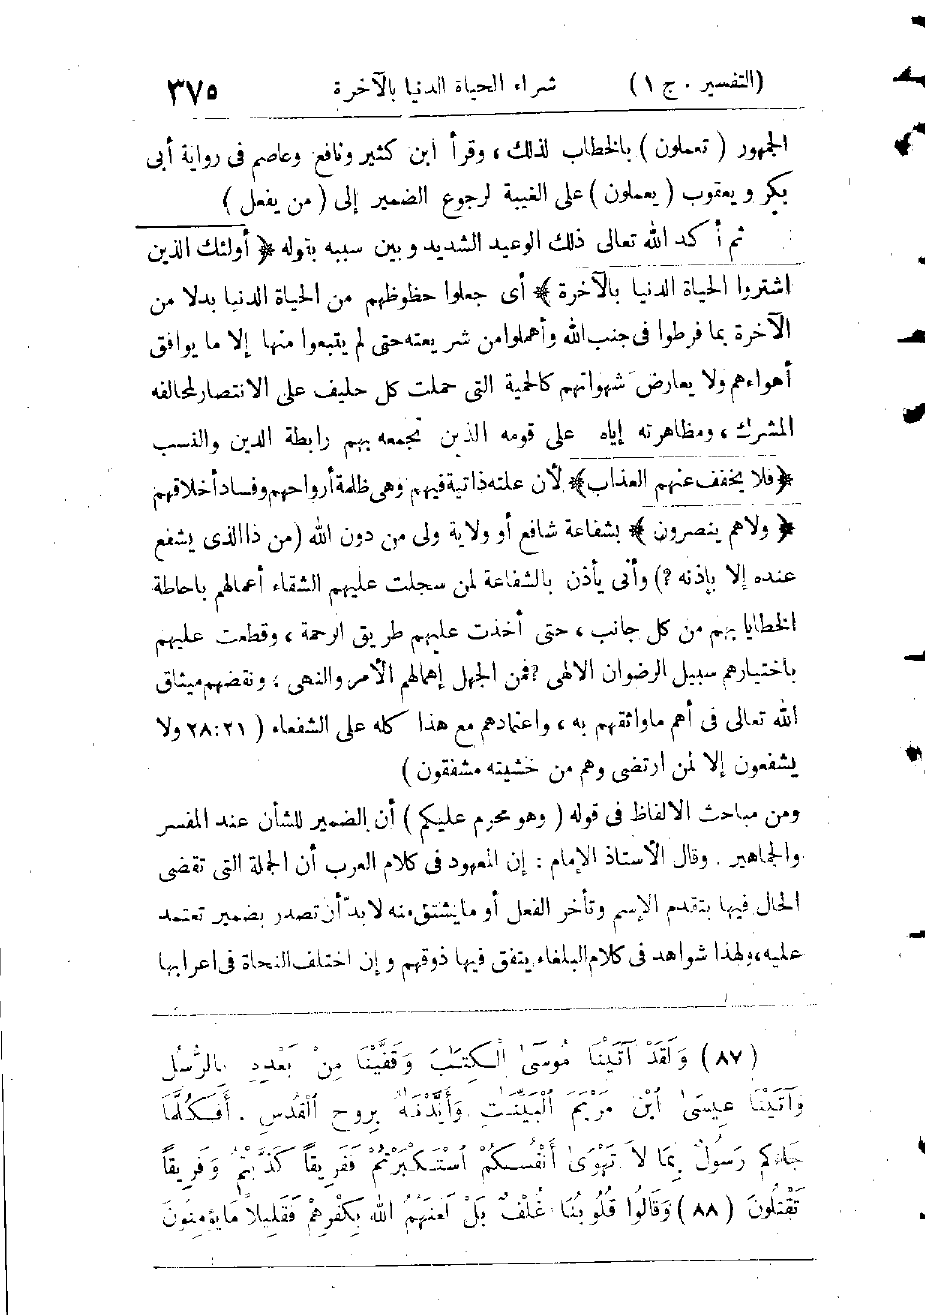 (التفسير . ج ١) شراء الحياة الدنيا بالآخرة ٣٧٥
الجمهور ( تعملون ) بالخطاب لذلك ، وقرأ ابن كثير ونافع وعاصم فى رواية أبى
بكر و يعقوب ( يعملون ) على الغيبة لرجوع الضمير إلى ( من يفعل )
ثم أكد الله تعالى ذلك الوعيد الشديد وبين سببه بقوله ﴿ أولئك الذين
اشتروا الحياة الدنيا بالآخرة ﴾ أى جعلوا حظوظهم من الحياة الدنيا بدلا من
الآخرة بما فرطوا فى جنب الله وأهملوا من شريعته حتى لم يتبعوا منها إلا ما يوافق
أهواءهم ولا يعارض شهواتهم كالحمية التى حملت كل حليف على الانتصار لمحالفه
المشرك ، ومظاهرته إياه على قومه الذين تجمعه بهم رابطة الدين والنسب
﴿ فلا يخفف عنهم العذاب ﴾ لأن علته ذاتية فيهم وهى ظلمة أرواحهم وفساد أخلاقهم
﴿ ولا هم ينصرون ﴾ بشفاعة شافع أو ولاية ولى من دون الله (من ذا الذى يشفع
عنده إلا بإذنه ؟) وأنى يأذن بالشفاعة لمن سجلت عليهم الشقاء أعمالهم باحاطة
الخطايا بهم من كل جانب ، حتى أخذت عليهم طريق الرحمة ، وقطعت عليهم
باختيارهم سبيل الرضوان الالهى ؟ فمن الجهل إهمالهم الأمر والنهى ؛ ونقضهم ميثاق
الله تعالى فى أهم ما واثقهم به ، واعتمادهم مع هذا كله على الشفعاء ( ٢٨:٢١ ولا
يشفعون إلا لمن ارتضى وهم من خشيته مشفقون )
ومن مباحث الالفاظ فى قوله ( وهو محرم عليكم ) أن الضمير للشأن عند المفسر
والجماهير . وقال الأستاذ الإمام : إن المعهود فى كلام العرب أن الجملة التى تقضى
الحال فيها بتقدم الإسم وتأخر الفعل أو ما يشتق منه لابدّ أن تصدر بضمير تعتمد
عليه، ولهذا شواهد فى كلام البلغاء يتفق فيها ذوقهم و إن اختلف النحاة فى اعرابها
(٨٧) وَلَقَدْ آتَيْنَا مُوسَىٰ الْكِتَٰبَ وَقَفَّيْنَا مِنْ بَعْدِهِ بِالرُّسُلِ
وَآتَيْنَا عِيسَىٰ ابْنَ مَرْيَمَ الْبَيِّنَٰتِ وَأَيَّدْنَٰهُ بِرُوحِ الْقُدُسِ . أَفَكُلَّمَا
جَاءَكُمْ رَسُولٌ بِمَا لاَ تَهْوَىٰ أَنْفُسُكُمْ اسْتَكْبَرْتُمْ فَفَرِيقاً كَذَّبْتُمْ وَفَرِيقاً
تَقْتُلُونَ (٨٨) وَقَالُوا قُلُوبُنَا غُلْفٌ بَلْ لَعَنَهُمُ اللهُ بِكُفْرِهِمْ فَقَلِيلاً مَا يُؤْمِنُونَ